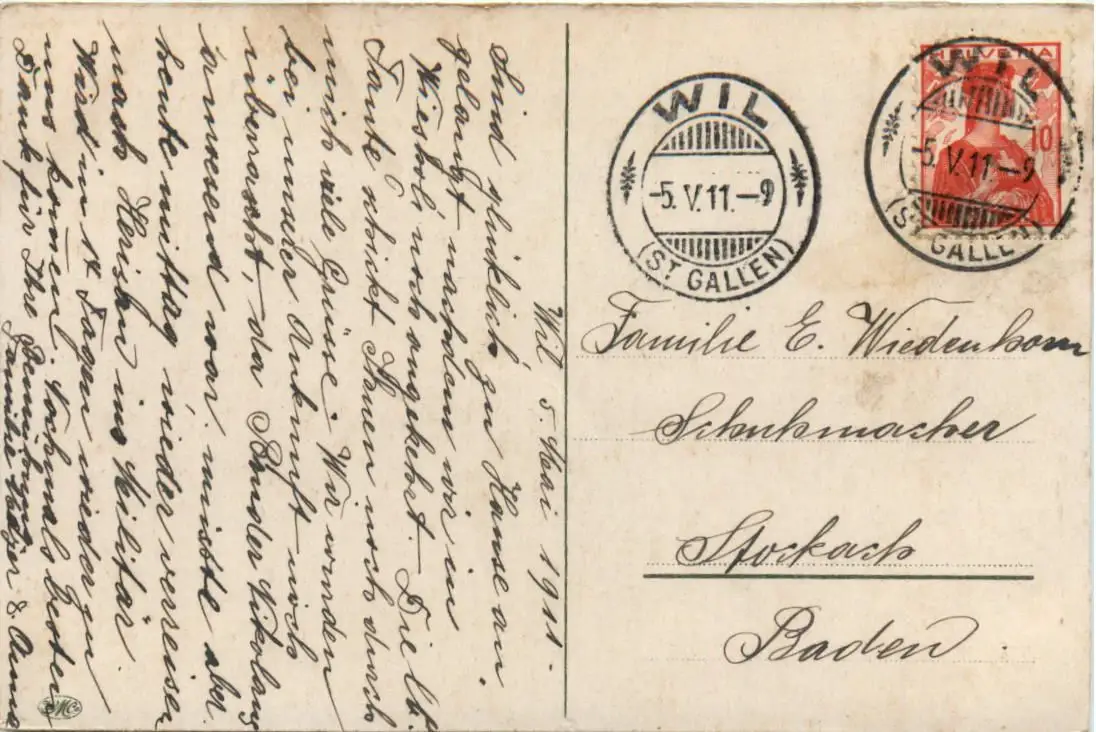 Wil 5. Mai 1911.
Sind glücklich zu Hause an
gelangt nachdem wir in
noch angekehrt. Die lb.
Tante schickt Ihnen noch durch
mich viele Grüsse. Wir wurden
bei unserer Ankunft noch
überrascht, da Bruder Nikolaus
anwesend war. musste aber
heute mittag wieder verreisen
nach Herisau ins Militär.
Wird in 14 Tagen wieder zu
uns kommen. Nochmals besten
Dank für Ihre
Familie & Anna
HELVETIA
10
WIL
-5.V.11.-9
(ST GALLEN)
WIL
-5.V.11.-9
(ST GALLEN)
Familie E. Wiedenhorn
Schuhmacher
Stockach
Baden